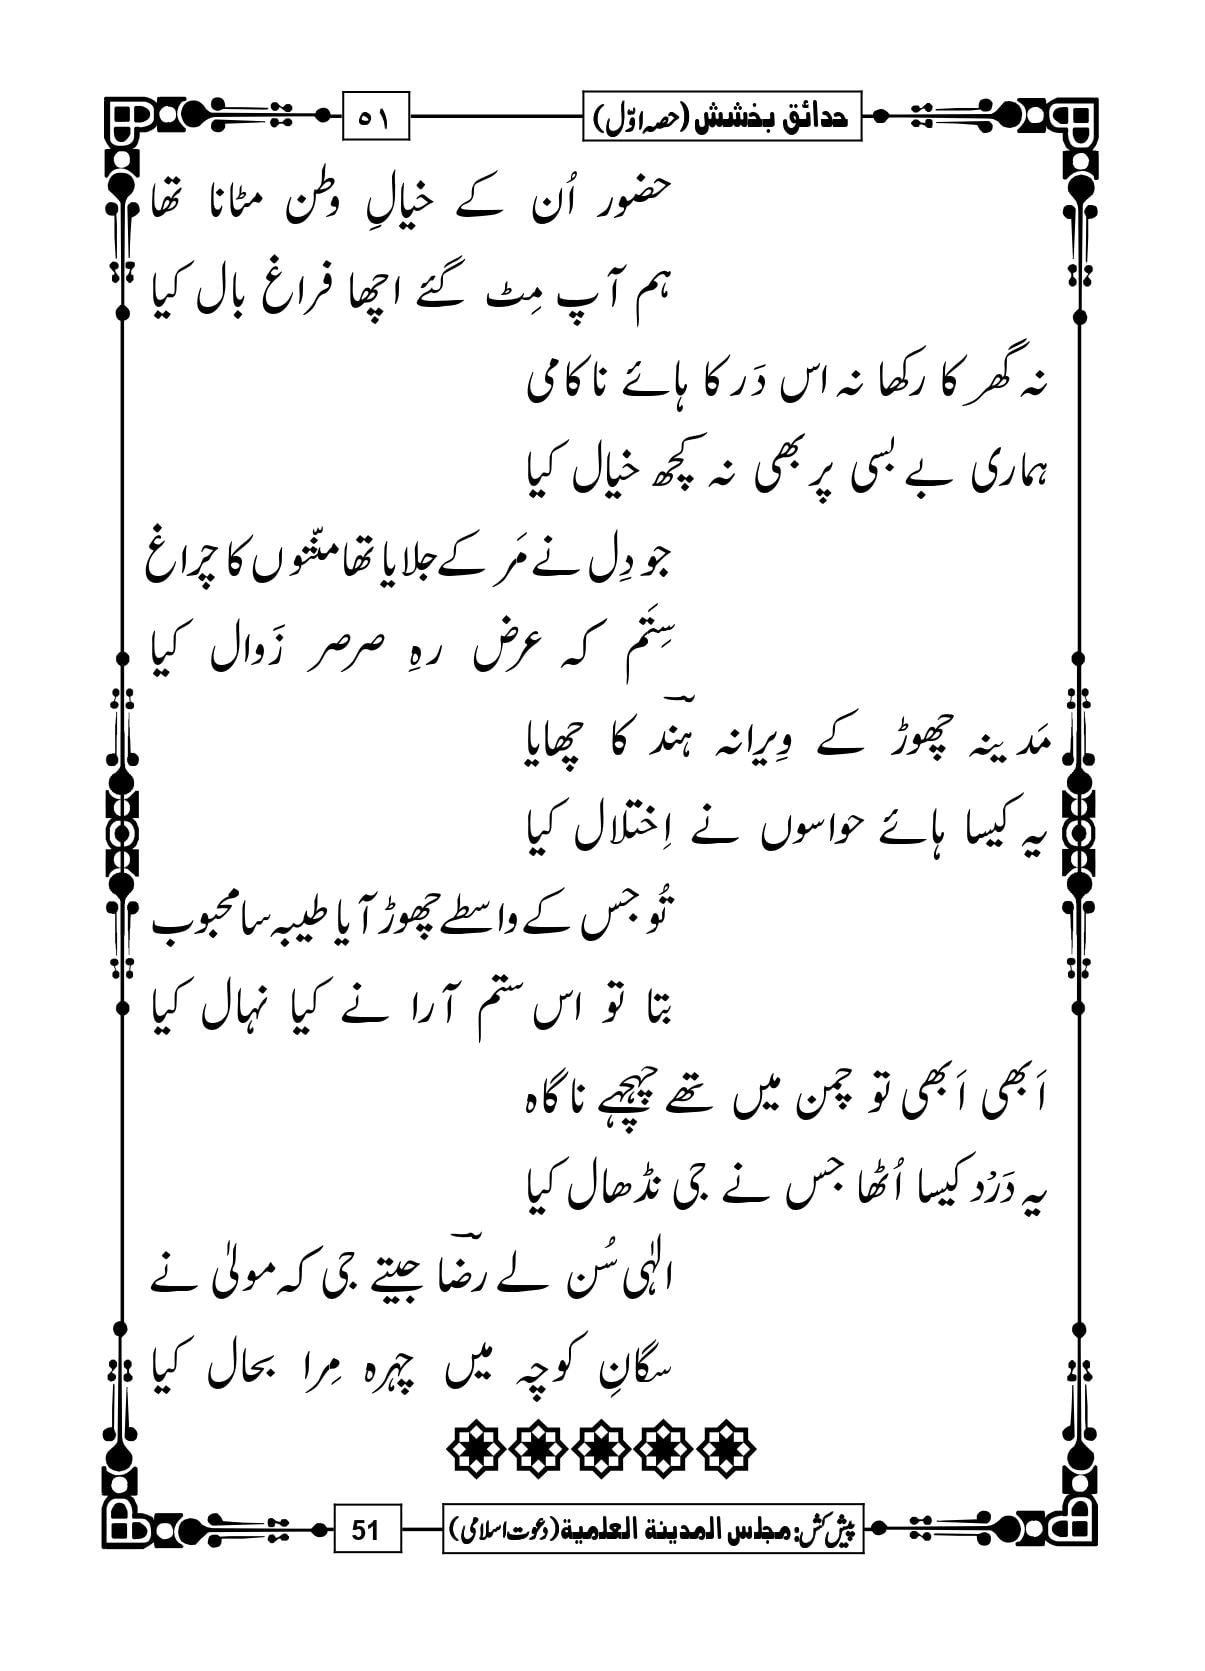 حدائق بخشش (حصہ اوّل)
٥١
حضور اُن کے خیالِ وطن مٹانا تھا
ہم آپ مِٹ گئے اچھا فراغِ بال کیا
نہ گھر کا رکھا نہ اس دَر کا ہائے ناکامی
ہماری بے بسی پر بھی نہ کچھ خیال کیا
جو دِل نے مَر کے جلایا تھا منّتوں کا چراغ
سِتَم کہ عرض رہِ صرصرِ زَوال کیا
مَدینہ چھوڑ کے وِیرانہ ہند کا چھایا
یہ کیسا ہائے حواسوں نے اِختلال کیا
تُو جس کے واسطے چھوڑ آیا طیبہ سا محبوب
بتا تو اس ستم آرا نے کیا نہال کیا
اَبھی اَبھی تو چمن میں تھے چہچہے ناگاہ
یہ دَرْد کیسا اُٹھا جس نے جی نڈھال کیا
الٰہی سُن لے رضؔا جیتے جی کہ مولیٰ نے
سگانِ کوچہ میں چہرہ مِرا بحال کیا
پیش کش: مجلس المدینة العلمیة (دعوت اسلامی)
51